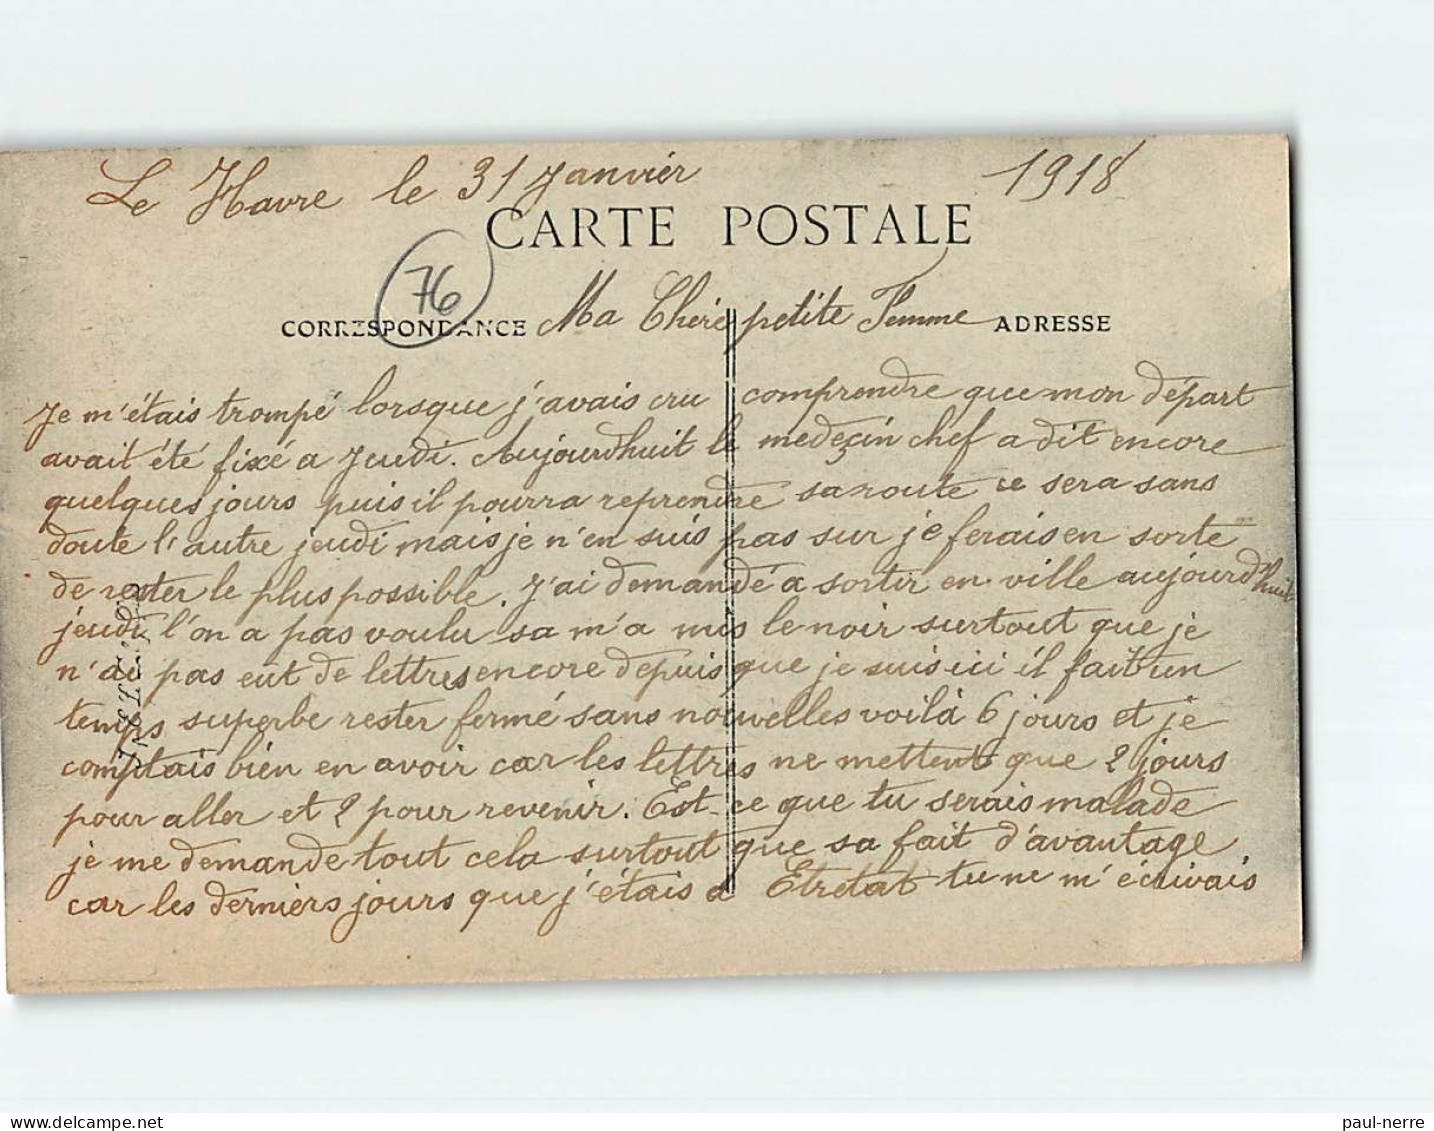 Le Havre le 31 Janvier 1918
CARTE POSTALE
76
CORRESPONDANCE Ma Chère petite Femme ADRESSE
Je m'étais trompé lorsque j'avais cru comprendre que mon départ
avait été fixé a Jeudi. Aujourdhuit le medeçin chef a dit encore
quelques jours puis il pourra reprendre sa route ce sera sans
doute l'autre jeudi mais je n'en suis pas sur je ferais en sorte
de rester le plus possible. J'ai demandé a sortir en ville aujourd'huit
jeudi l'on a pas voulu sa m'a mis le noir surtout que je
n'ai pas eut de lettres encore depuis que je suis ici il fait un
temps superbe rester fermé sans nouvelles voilà 6 jours et je
comptais bien en avoir car les lettres ne mettent que 2 jours
pour aller et 2 pour revenir. Est-ce que tu serais malade
je me demande tout cela surtout que sa fait d'avantage
car les derniers jours que j'étais a Etretat tu ne m'écrivais
paul-nerre